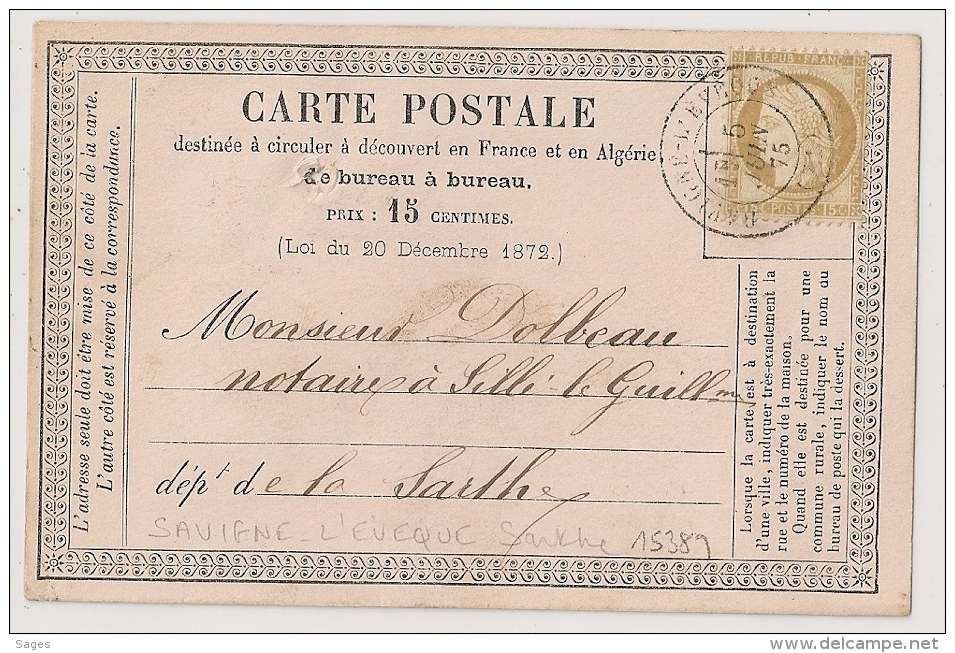 CARTE POSTALE
destinée à circuler à découvert en France et en Algérie
de bureau à bureau.
PRIX : 15 CENTIMES.
(Loi du 20 Décembre 1872.)
REPUB·FRANC
POSTES 15c
5
JUIN
75
L'adresse seule doit être mise de ce côté de la carte.
L'autre côté est réservé à la correspondance.
Monsieur Dolbeau
notaire à Sillé-le-Guillme
dépt de la Sarthe
Lorsque la carte est à destination
d'une ville, indiquer très-exactement la
rue et le numéro de la maison.
Quand elle est destinée pour une
commune rurale, indiquer le nom du
bureau de poste qui la dessert.
SAVIGNE-L'EVEQUE Sarthe 15389
Sages
www.delcampe.net